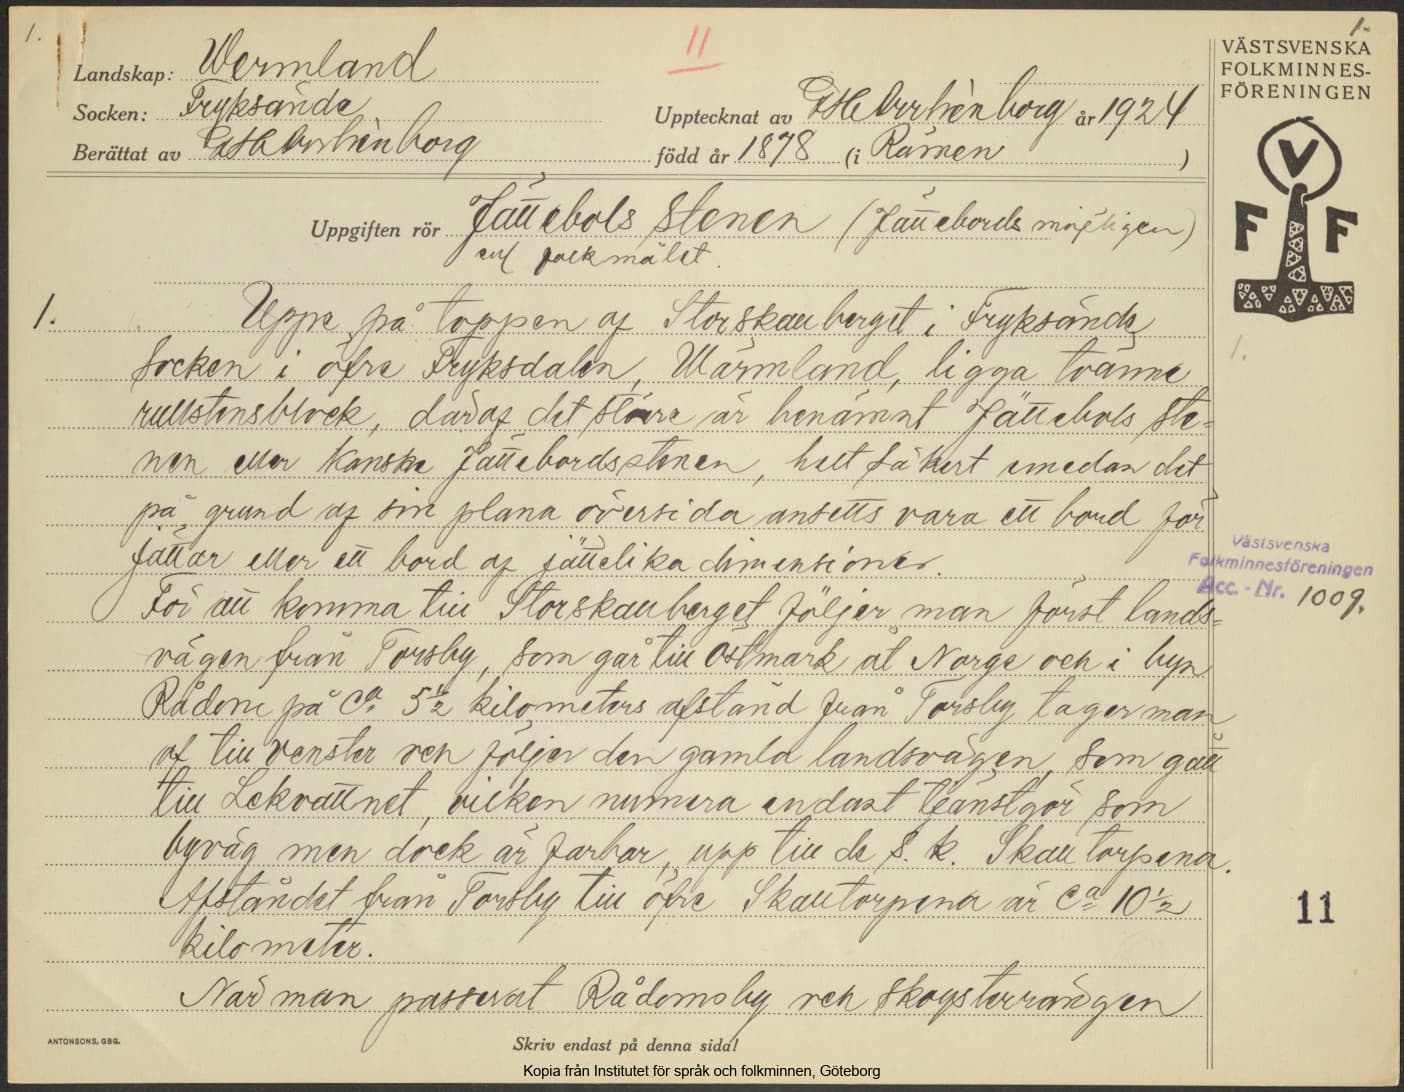 1.
11
1.
Landskap: Wermland
Socken: Fryksände
Upptecknat av år 1924
Berättat av född år 1878 (i Rämen )
VÄSTSVENSKA
FOLKMINNES-
FÖRENINGEN
V
F F
Uppgiften rör Jättebols stenen (Jättebords möjligen)
enl folkmålet.
1. Uppe på toppen af Storskauberget i Fryksände
1.
socken i öfre Fryksdalen, Wärmland, ligga tvänne
rullstensblock, däraf det större är benämnt Jättebols ste=
nen eller kanske Jättebordsstenen, helt säkert emedan det
på grund af sin plana översida ansetts vara ett bord för
jättar eller ett bord af jättelika dimensioner.
För att komma till Storskauberget följer man först lands=
vägen från Torsby, som går till Östmark åt Norge och i byn
Rådom på ca 5½ kilometers afstånd från Torsby tager man
af till venster och följer den gamla landsvägen, som gått
till Lekvattnet, vilken numera endast tjänstgör som
byväg men dock är farbar, upp till de s. k. Skautorpena.
Afståndet från Torsby till öfre Skautorpena är ca 10½
kilometer.
När man passerat Rådomsby och skogsterrängen
Västsvenska
Folkminnesföreningen
Acc.-Nr. 1009.
11
ANTONSONS, GBG.
Skriv endast på denna sida!
Kopia från Institutet för språk och folkminnen, Göteborg